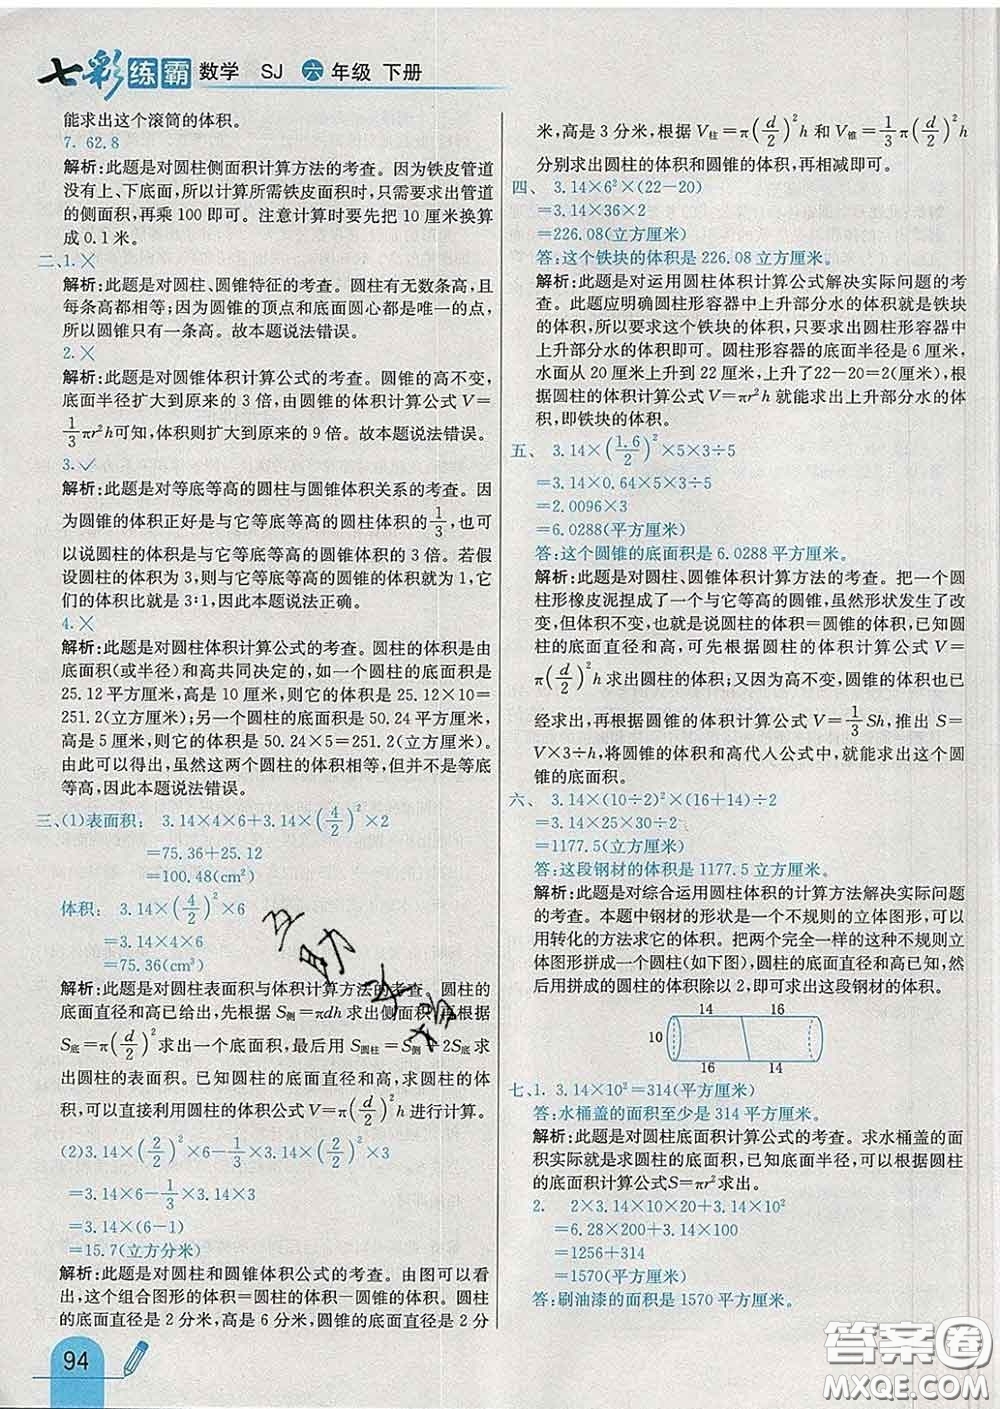 七彩练霸 数学 SJ 六年级 下册
能求出这个滚筒的体积。
7. 62.8
解析:此题是对圆柱侧面积计算方法的考查。因为铁皮管道
没有上、下底面,所以计算所需铁皮面积时,只需要求出管道
的侧面积,再乘 100 即可。注意计算时要先把 10 厘米换算
成 0.1 米。
二、1. ×
解析:此题是对圆柱、圆锥特征的考查。圆柱有无数条高,且
每条高都相等;因为圆锥的顶点和底面圆心都是唯一的点,
所以圆锥只有一条高。故本题说法错误。
2. ×
解析:此题是对圆锥体积计算公式的考查。圆锥的高不变,
底面半径扩大到原来的 3 倍,由圆锥的体积计算公式 V=
1/3 πr²h可知,体积则扩大到原来的 9 倍。故本题说法错误。
3. ✓
解析:此题是对等底等高的圆柱与圆锥体积关系的考查。因
为圆锥的体积正好是与它等底等高的圆柱体积的 1/3,也可
以说圆柱的体积是与它等底等高的圆锥体积的 3 倍。若假
设圆柱的体积为 3,则与它等底等高的圆锥的体积就为 1,它
们的体积比就是 3∶1,因此本题说法正确。
4. ×
解析:此题是对圆柱体积计算公式的考查。圆柱的体积是由
底面积(或半径)和高共同决定的,如一个圆柱的底面积是
25.12 平方厘米,高是 10 厘米,则它的体积是 25.12×10=
251.2(立方厘米);另一个圆柱的底面积是 50.24 平方厘米,
高是 5 厘米,则它的体积是 50.24×5=251.2(立方厘米)。
由此可以得出,虽然这两个圆柱的体积相等,但并不是等底
等高,因此本题说法错误。
三、(1)表面积: 3.14×4×6+3.14×(4/2)²×2
=75.36+25.12
=100.48(cm²)
体积: 3.14×(4/2)²×6
=3.14×4×6
=75.36(cm³)
解析:此题是对圆柱表面积与体积计算方法的考查。圆柱的
底面直径和高已给出,先根据 S侧=πdh 求出侧面积,再根据
S底=π(d/2)² 求出一个底面积,最后用 S圆柱=S侧+2S底 求
出圆柱的表面积。已知圆柱的底面直径和高,求圆柱的体积,
可以直接利用圆柱的体积公式 V=π(d/2)²h 进行计算。
(2)3.14×(2/2)²×6-1/3×3.14×(2/2)²×3
=3.14×6-1/3×3.14×3
=3.14×(6-1)
=15.7(立方分米)
解析:此题是对圆柱和圆锥体积公式的考查。由图可以看
出,这个组合图形的体积=圆柱的体积-圆锥的体积。圆柱
的底面直径是 2 分米,高是 6 分米,圆锥的底面直径是 2 分
94
米,高是 3 分米,根据 V柱=π(d/2)²h 和 V锥=1/3 π(d/2)²h
分别求出圆柱的体积和圆锥的体积,再相减即可。
四、 3.14×6²×(22-20)
=3.14×36×2
=226.08(立方厘米)
答:这个铁块的体积是 226.08 立方厘米。
解析:此题是对运用圆柱体积计算公式解决实际问题的考
查。此题应明确圆柱形容器中上升部分水的体积就是铁块
的体积,所以要求这个铁块的体积,只要求出圆柱形容器中
上升部分水的体积即可。圆柱形容器的底面半径是 6 厘米,
水面从 20 厘米上升到 22 厘米,上升了22-20=2(厘米),根
据圆柱体积计算公式 V=πr²h 就能求出上升部分水的体
积,即铁块的体积。
五、 3.14×(1.6/2)²×5×3÷5
=3.14×0.64×5×3÷5
=2.0096×3
=6.0288(平方厘米)
答:这个圆锥的底面积是 6.0288 平方厘米。
解析:此题是对圆柱、圆锥体积计算方法的考查。把一个圆
柱形橡皮泥捏成了一个与它等高的圆锥,虽然形状发生了改
变,但体积不变,也就是说圆柱的体积=圆锥的体积。已知圆
柱的底面直径和高,可先根据圆柱的体积计算公式 V=
π(d/2)²h 求出圆柱的体积;又因为高不变,圆锥的体积也已
经求出,再根据圆锥的体积计算公式 V=1/3 Sh,推出 S=
V×3÷h,将圆锥的体积和高代人公式中,就能求出这个圆
锥的底面积。
六、 3.14×(10÷2)²×(16+14)÷2
=3.14×25×30÷2
=1177.5(立方厘米)
答:这段钢材的体积是 1177.5 立方厘米。
解析:此题是对综合运用圆柱体积的计算方法解决实际问题
的考查。本题中钢材的形状是一个不规则的立体图形,可以
用转化的方法求它的体积。把两个完全一样的这种不规则立
体图形拼成一个圆柱(如下图),圆柱的底面直径和高已知,然
后用拼成的圆柱的体积除以 2,即可求出这段钢材的体积。
14 16
10
16 14
七、1. 3.14×10²=314(平方厘米)
答:水桶盖的面积至少是 314 平方厘米。
解析:此题是对圆柱底面积计算公式的考查。求水桶盖的面
积实际就是求圆柱的底面积,已知底面半径,可以根据圆柱
的底面积计算公式S=πr²求出。
2. 2×3.14×10×20+3.14×10²
=6.28×200+3.14×100
=1256+314
=1570(平方厘米)
答:刷油漆的面积是 1570 平方厘米。
答案圈
MXQE.COM